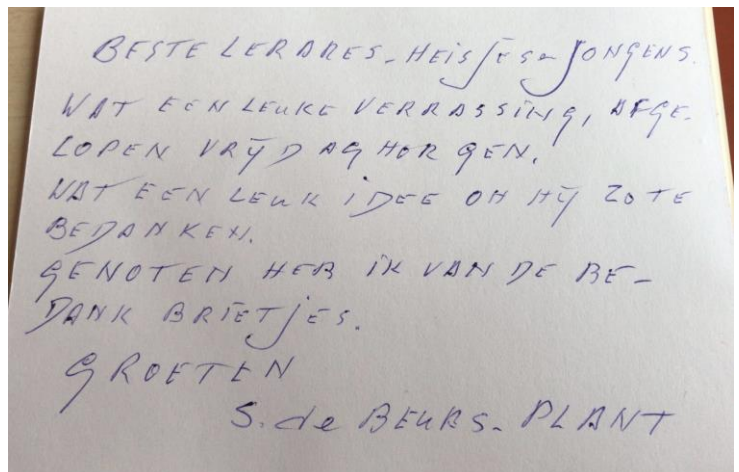 BESTE LERARES, MEISJES & JONGENS.
WAT EEN LEUKE VERRASSING, AFGE-
LOPEN VRIJDAG MORGEN.
WAT EEN LEUK IDEE OM MIJ ZO TE
BEDANKEN.
GENOTEN HEB IK VAN DE BE-
DANK BRIETJES.
GROETEN
S. de BEURS-PLANT